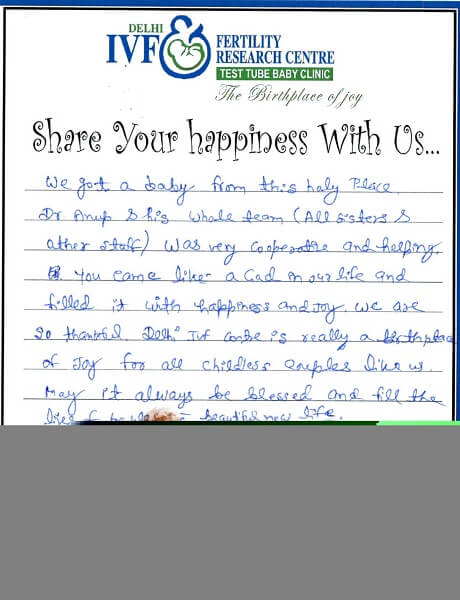 DELHI
IVF
FERTILITY
RESEARCH CENTRE
TEST TUBE BABY CLINIC
The Birthplace of joy
Share Your happiness With Us...
We got a baby from this holy Place.
Dr Anup & his whole team (All sisters &
other staff) was very cooperative and helping.
You came like a God in our life and
filled it with happiness and joy. We are
so thankful. Delhi IVF centre is really a birthplace
of Joy for all childless couples like us.
May it always be blessed and fill the
beautiful new life.